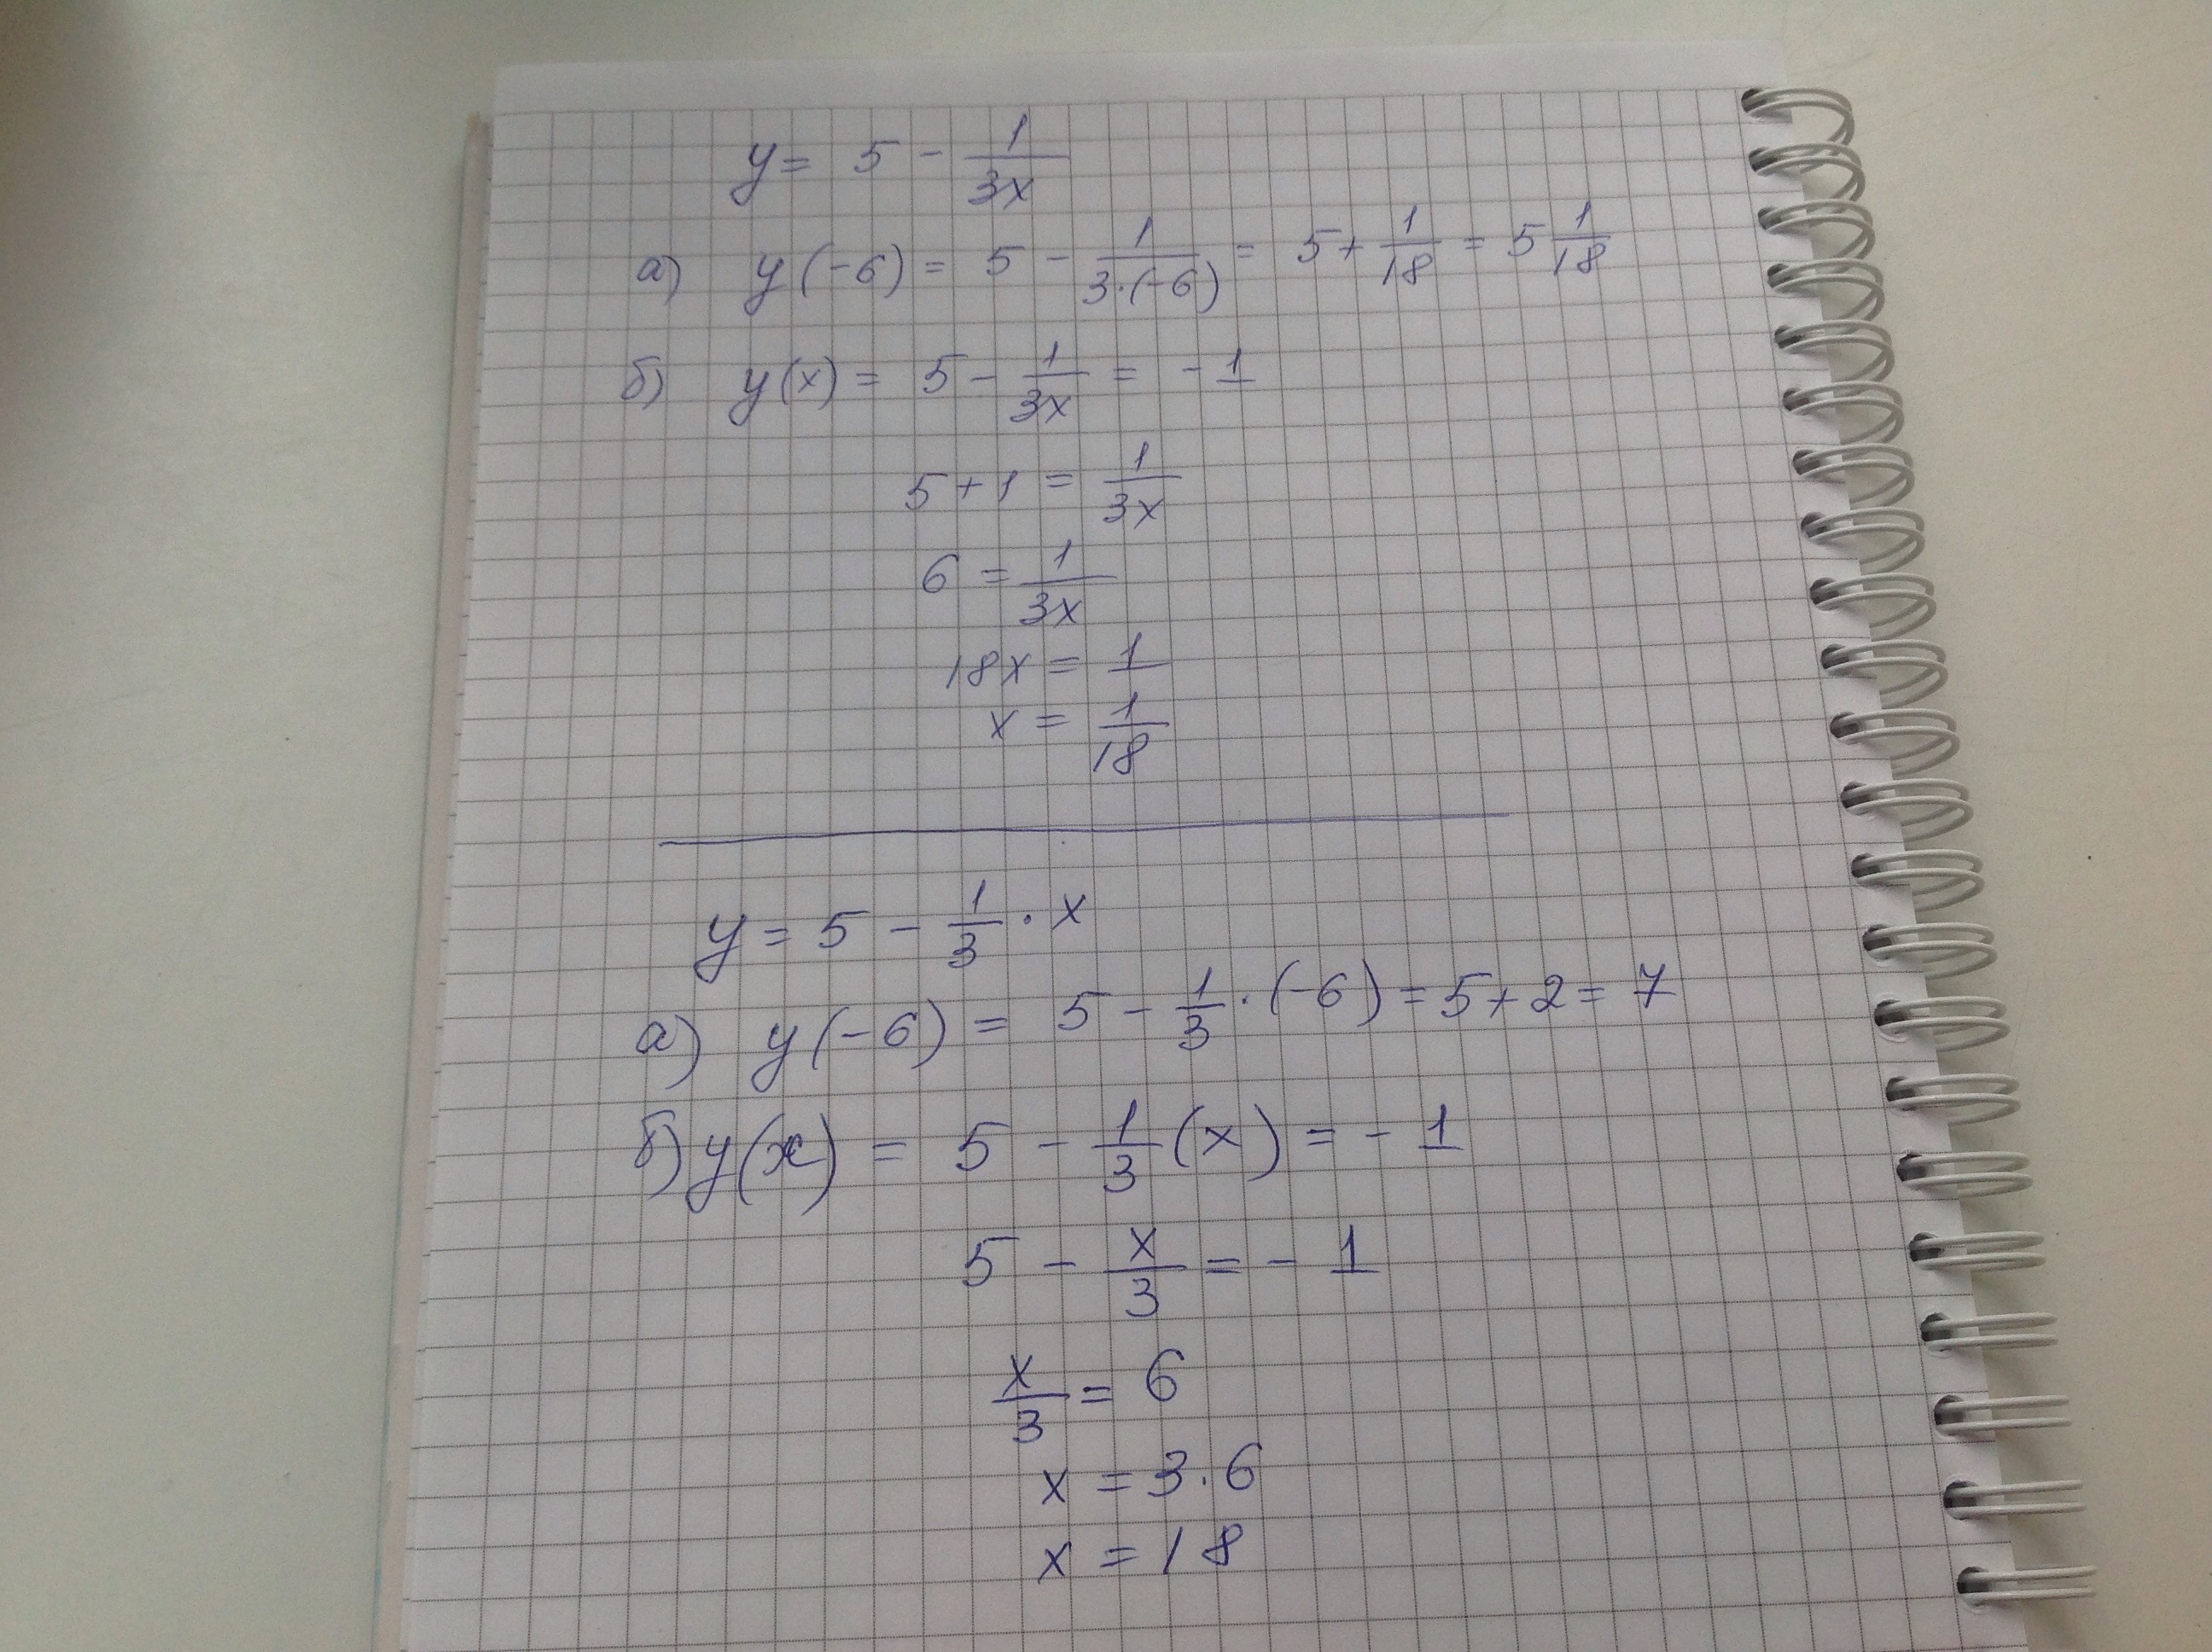 y = 5 - 1/3x
а) y(-6) = 5 - 1/3·(-6) = 5 + 1/18 = 5 1/18
б) y(x) = 5 - 1/3x = -1
5 + 1 = 1/3x
6 = 1/3x
18x = 1
x = 1/18
y = 5 - 1/3 · x
а) y(-6) = 5 - 1/3 · (-6) = 5 + 2 = 7
б) y(x) = 5 - 1/3 (x) = -1
5 - x/3 = -1
x/3 = 6
x = 3·6
x = 18